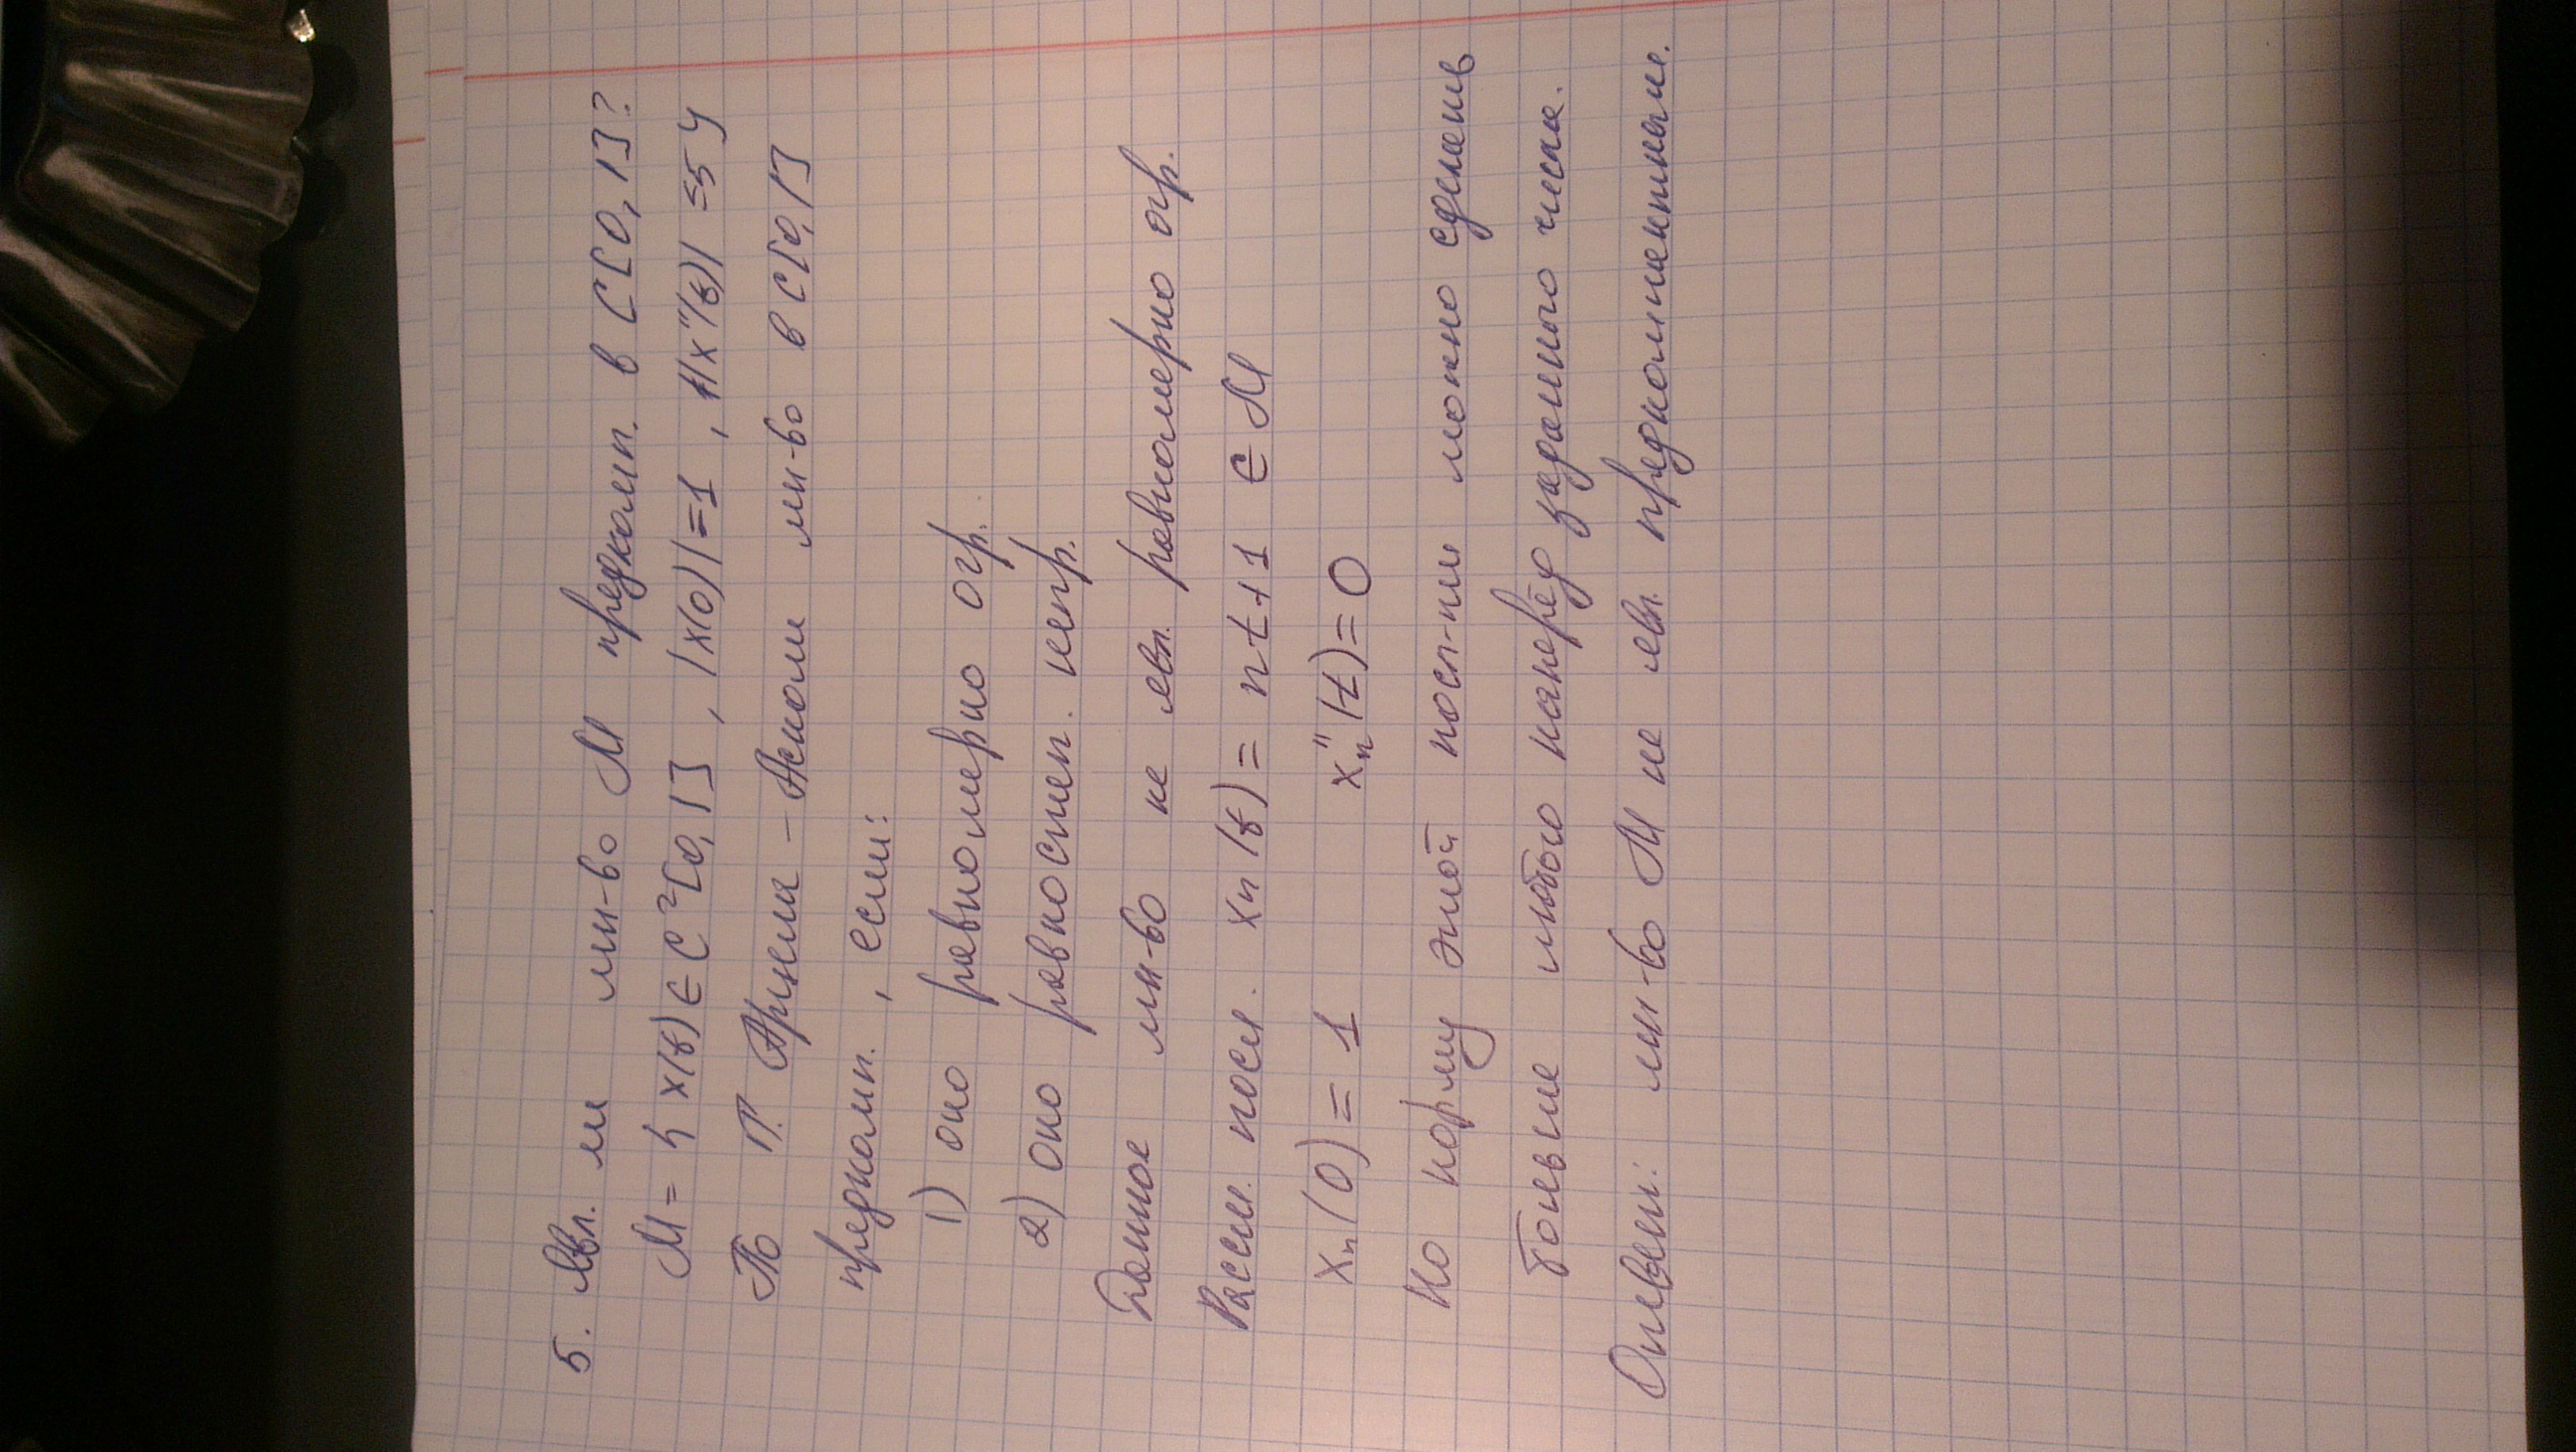 5. Явл. ли мн-во M предкомп. в C[0,1]?
M = { x(t) ∈ C²[0,1] , |x(0)|=1 , |x"(t)| ≤5 }
По т. Арцела - Асколи мн-во в C[0,1]
предкомп. , если:
1) оно равномерно огр.
2) оно равностеп. непр.
Данное мн-во не явл. равномерно огр.
Рассм. посл. xₙ(t) = nt+1 ∈ M
xₙ(0) = 1 xₙ"(t)=0
Но норму этой посл-ти можно сделать
больше любого наперёд заданного числа.
Ответ: мн-во M не явл. предкомпактным.